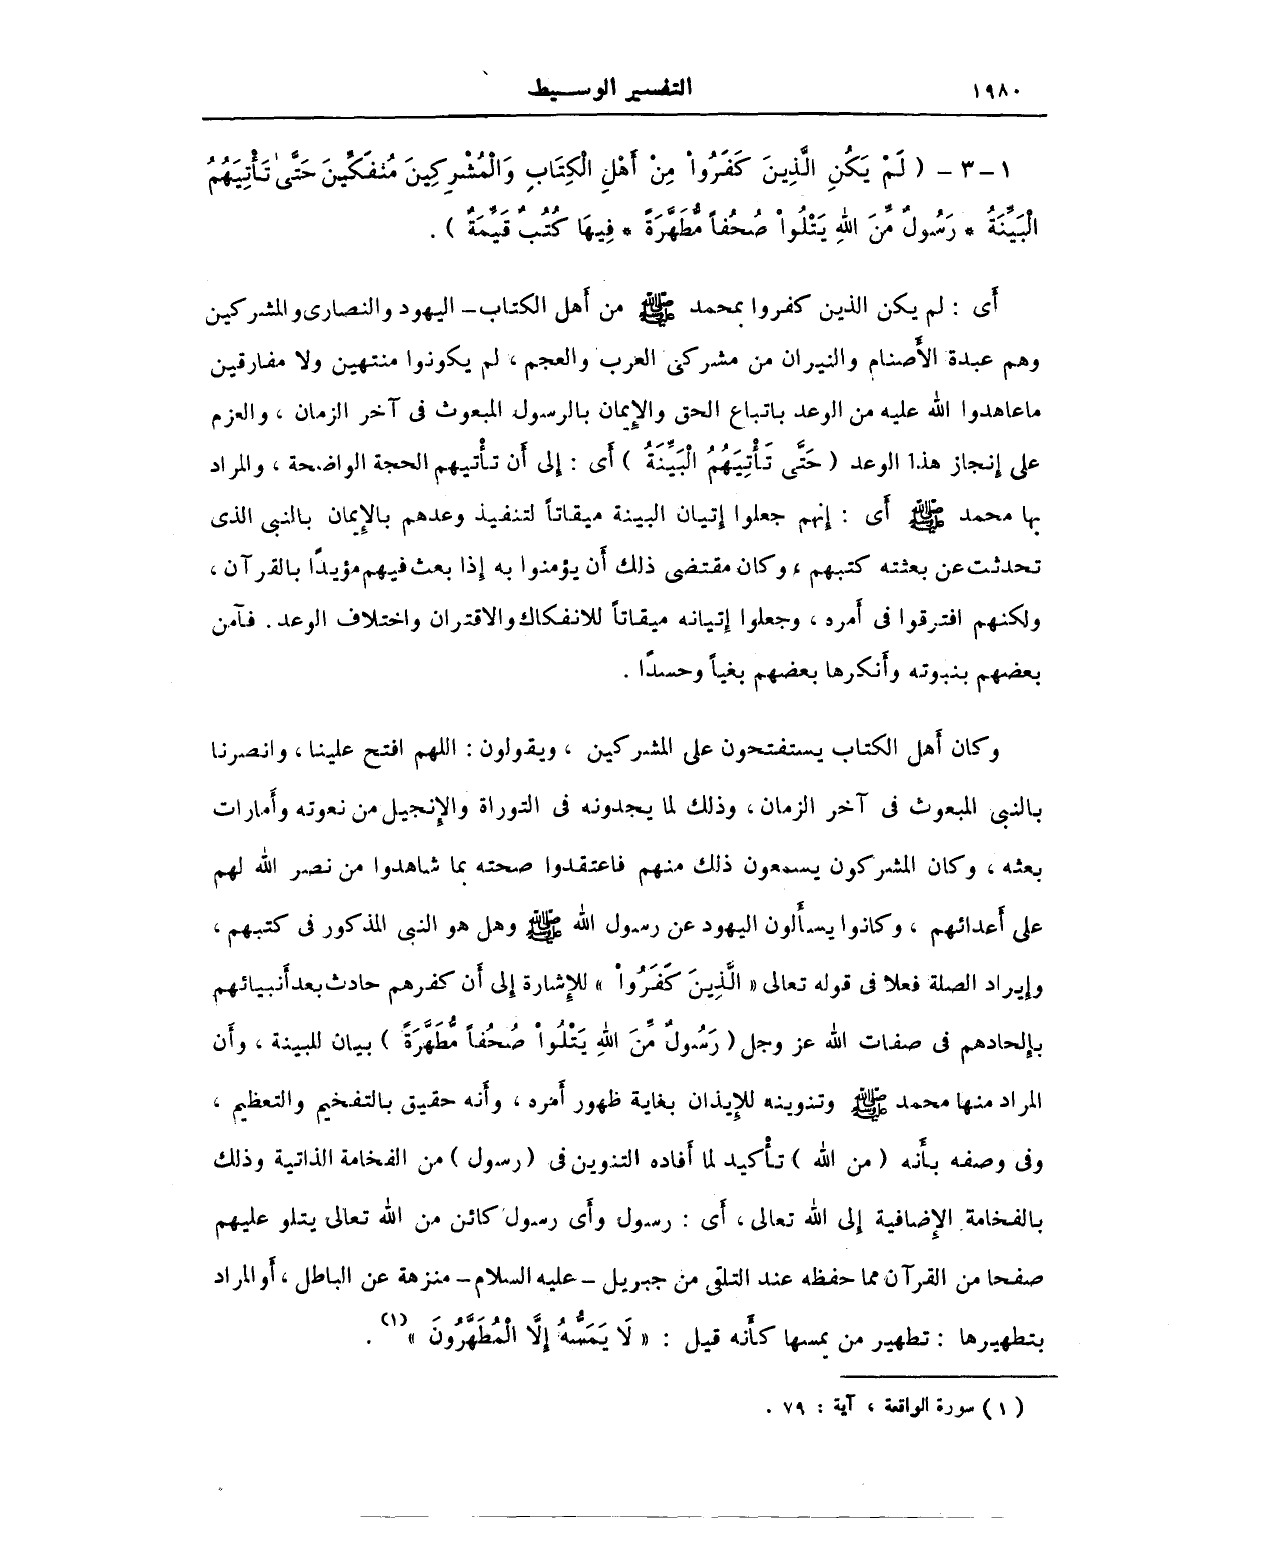 ١٩٨٠ التفسير الوسيط
١-٣- ( لَمْ يَكُنِ الَّذِينَ كَفَرُواْ مِنْ أَهْلِ الْكِتَابِ وَالْمُشْرِكِينَ مُنفَكِّينَ حَتَّىٰ تَأْتِيَهُمُ
الْبَيِّنَةُ * رَسُولٌ مِّنَ اللهِ يَتْلُواْ صُحُفاً مُّطَهَّرَةً * فِيهَا كُتُبٌ قَيِّمَةٌ ) .
أَى : لم يكن الذين كفروا بمحمد ﷺ من أَهل الكتاب- اليهود والنصارى والمشركين
وهم عبدة الأَصنام والنيران من مشركى العرب والعجم ، لم يكونوا منتهين ولا مفارقين
ماعاهدوا الله عليه من الوعد باتباع الحق والإِيمان بالرسول المبعوث فى آخر الزمان ، والعزم
على إِنجاز هذا الوعد ( حَتَّى تَأْتِيَهُمُ الْبَيِّنَةُ ) أَى : إِلى أَن تأْتيهم الحجة الواضحة ، والمراد
بها محمد ﷺ أَى : إِنهم جعلوا إِتيان البينة ميقاتاً لتنفيذ وعدهم بالإِيمان بالنبى الذى
تحدثت عن بعثته كتبهم ، وكان مقتضى ذلك أَن يؤمنوا به إِذا بعث فيهم مؤيدًا بالقرآن ،
ولكنهم افترقوا فى أَمره ، وجعلوا إِتيانه ميقاتاً للانفكاك والاقتران واختلاف الوعد . فآمن
بعضهم بنبوته وأَنكرها بعضهم بغياً وحسدًا .
وكان أَهل الكتاب يستفتحون على المشركين ، ويقولون : اللهم افتح علينا ، وانصرنا
بالنبى المبعوث فى آخر الزمان ، وذلك لما يجدونه فى التوراة والإِنجيل من نعوته وأَمارات
بعثه ، وكان المشركون يسمعون ذلك منهم فاعتقدوا صحته بما شاهدوا من نصر الله لهم
على أَعدائهم ، وكانوا يسأَلون اليهود عن رسول الله ﷺ وهل هو النبى المذكور فى كتبهم ،
وإِيراد الصلة فعلا فى قوله تعالى « الَّذِينَ كَفَرُواْ » للإِشارة إِلى أَن كفرهم حادث بعد أَنبيائهم
بإِلحادهم فى صفات الله عز وجل ( رَسُولٌ مِّنَ اللهِ يَتْلُواْ صُحُفاً مُّطَهَّرَةً ) بيان للبينة ، وأَن
المراد منها محمد ﷺ وتنوينه للإِيذان بغاية ظهور أَمره ، وأَنه حقيق بالتفخيم والتعظيم ،
وفى وصفه بأَنه ( من الله ) تأْكيد لما أَفاده التنوين فى ( رسول ) من الفخامة الذاتية وذلك
بالفخامة الإِضافية إِلى الله تعالى ، أَى : رسول وأَى رسول كائن من الله تعالى يتلو عليهم
صفحا من القرآن مما حفظه عند التلقى من جبريل - عليه السلام - منزهة عن الباطل ، أَو المراد
بتطهيرها : تطهير من يمسها كأَنه قيل : « لَا يَمَسُّهُ إِلَّا الْمُطَهَّرُونَ »(١) .
(١) سورة الواقعة ، آية : ٧٩ .